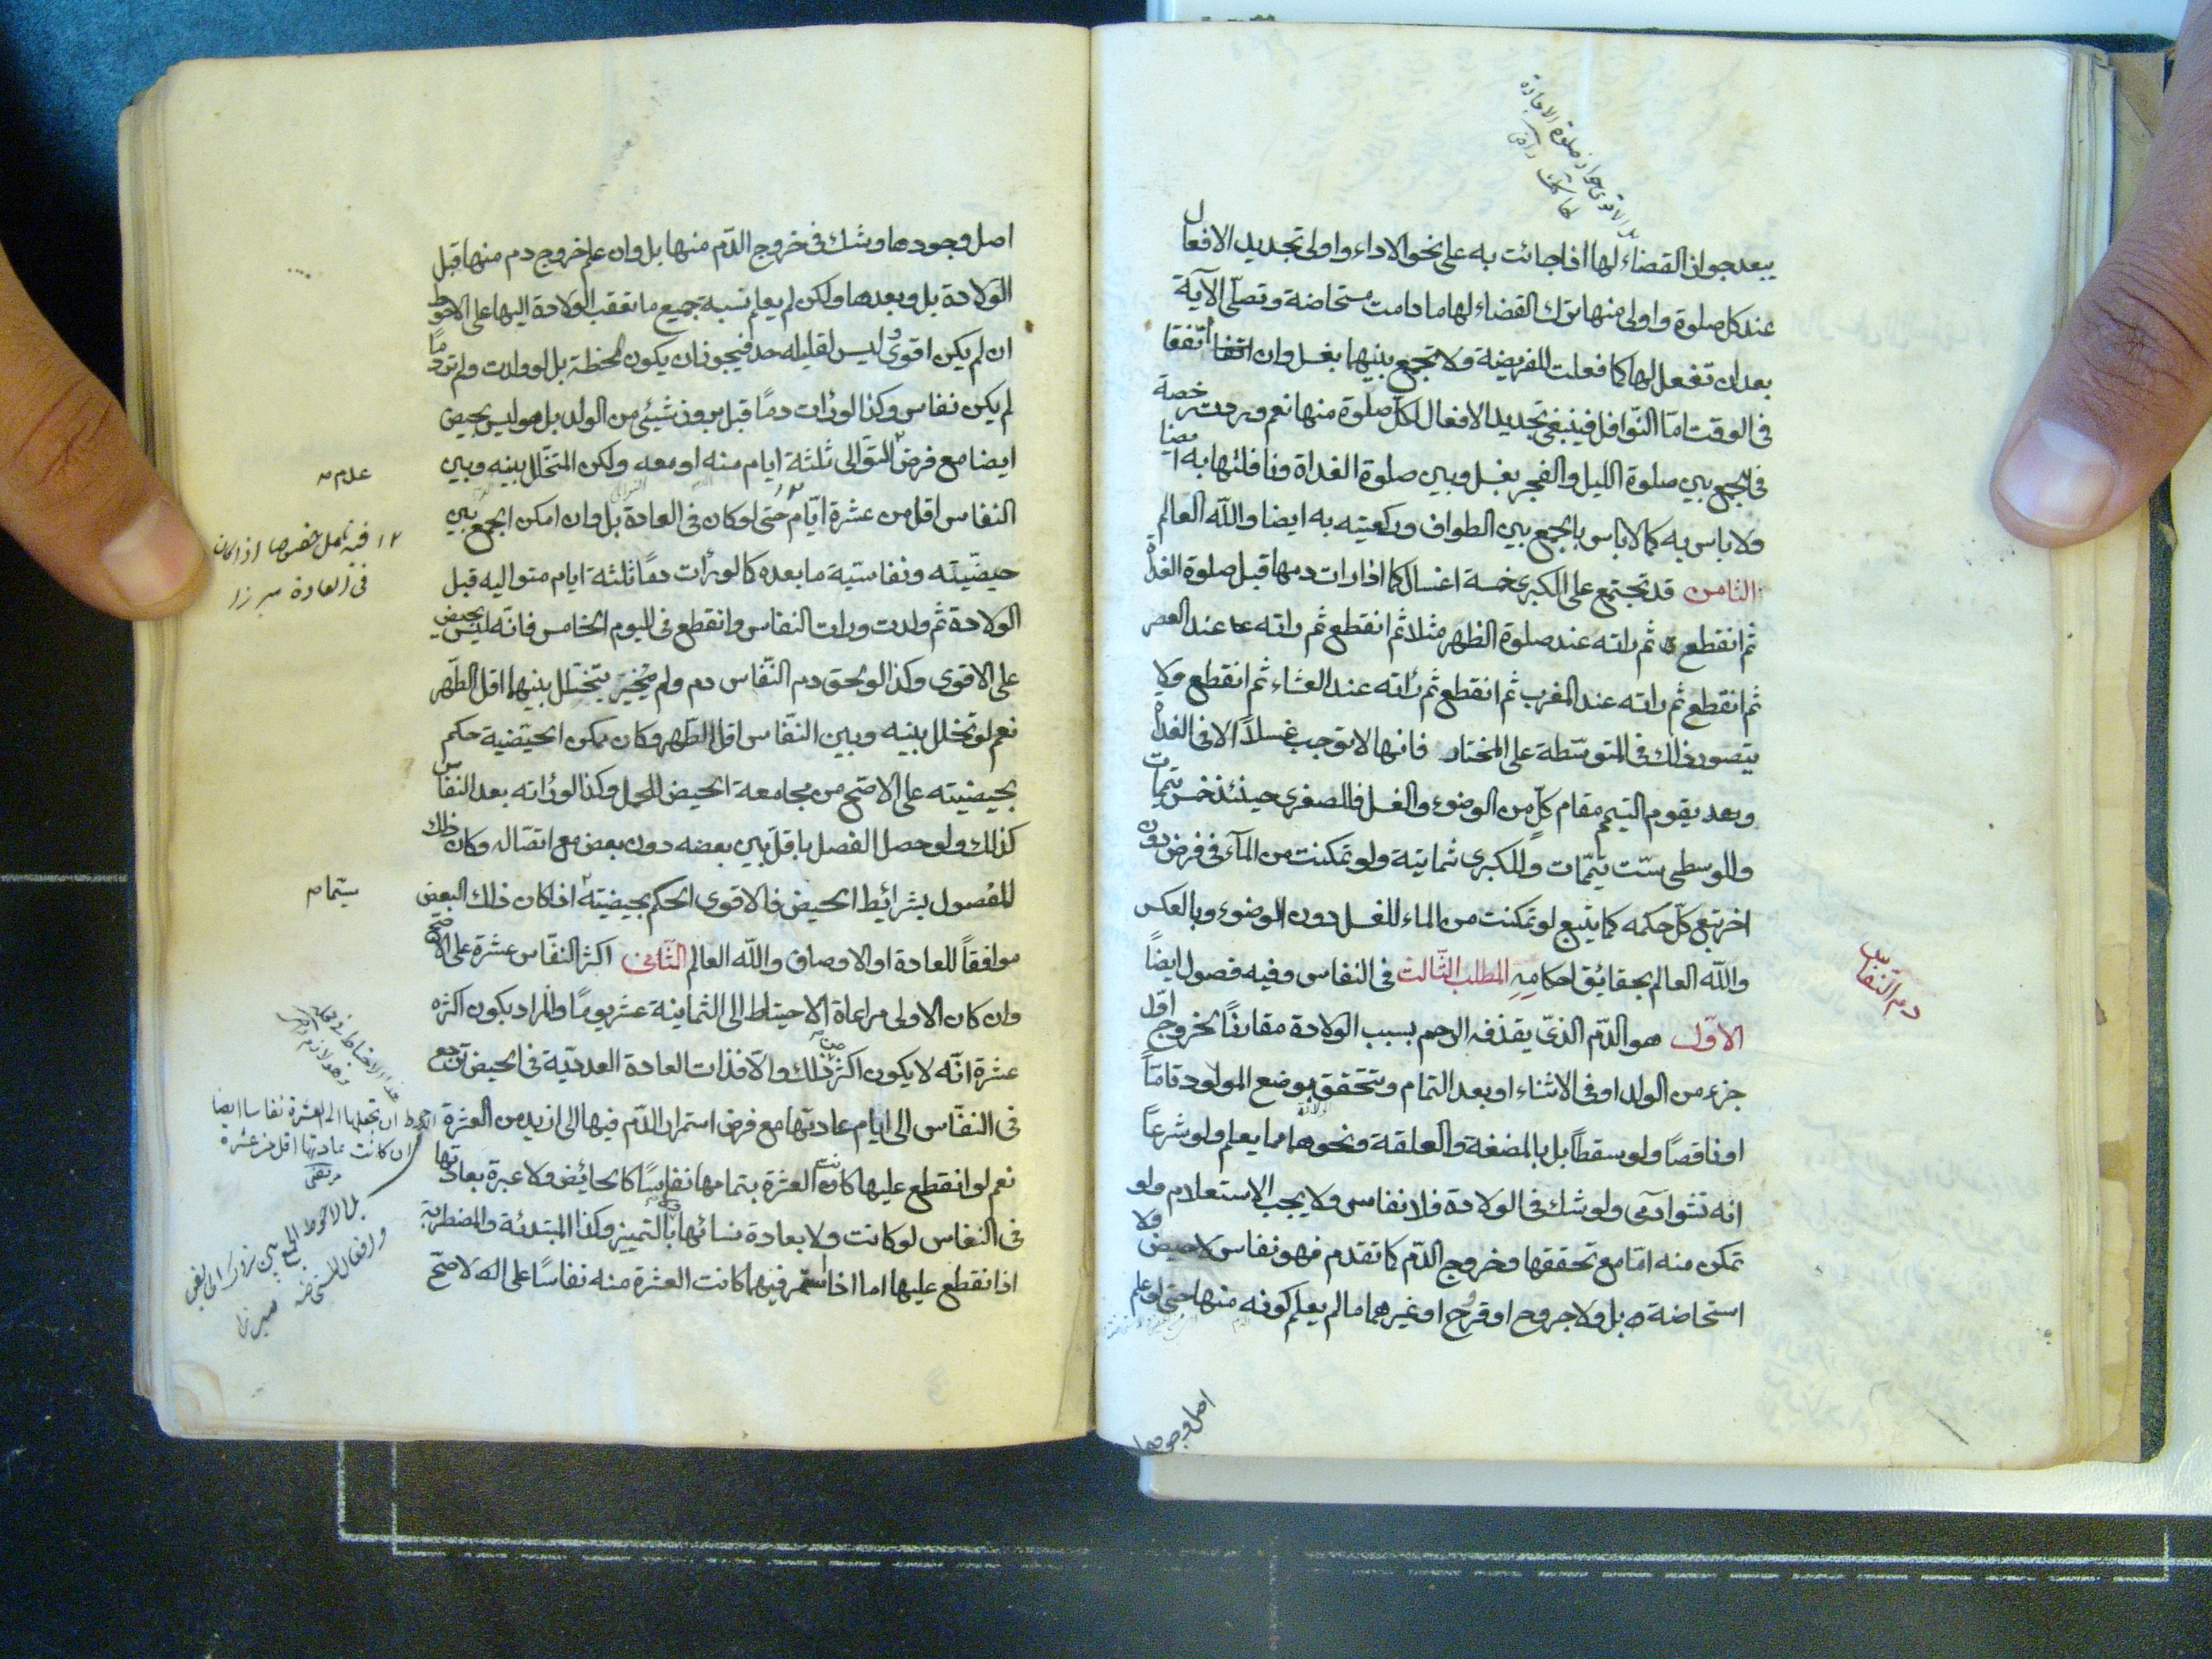 يبعد جواز القضاء لها اذا جائت به على نحو الاداء واولى تجديد الافعال
عند كل صلوة واولى منها ترك القضاء لها ما دامت مستحاضة وتصلّى الآية
بعد ان تفعل لها كما فعلت للفريضة ولا تجمع بينهما بغسل وان اتفقا
فى الوقت امّا النّوافل فينبغى تجديد الافعال لكلّ صلوة منها نعم وردت رخصة
فى الجمع بين صلوة الليل والفجر بغسل وبين صلوة الغداة ونافلتها به ايضا
ولا باس به كما لا باس بالجمع بين الطواف وركعتيه به ايضا والله العالم
الثامن قد تجتمع على الكبرى خمسة اغسال كما اذا رات دمها قبل صلوة الغداة
ثم انقطع ثم راته عند صلوة الظهر مثلا ثم انقطع ثم راته عند العصر
ثم انقطع ثم راته عند المغرب ثم انقطع ثم رأته عند العشاء ثم انقطع ولا
يتصور ذلك فى المتوسّطة على المختار فانها لا توجب غسلاً الا فى الغداة
وبعد يقوم التيمم مقام كلٍّ من الوضوء والغسل فللصغرى حينئذ خمس تيممات
والوسطى ستّ تيمّمات وللكبرى ثمانية ولو تمكنت من المآء فى فرض دون
اخر تبع كلّ حكمه كما يتّبع لو تمكنت من الماء للغسل دون الوضوء وبالعكس
والله العالم بحقائق احكامِهِ المطلب الثّالث فى النفاس وفيه فصول ايضاً
دم النّفاس
الاوّل هو الدّم الذىّ يقذفه الرحم بسبب الولادة مقارنًا لخروج اوّل
جزء من الولد او فى الاثناء او بعد التمام وتتحقق بوضع المولود تامّاً
او ناقصًا ولو سقطاً بل بالمضغة والعلقة ونحوهما مما يعلم ولو شرعاً
انه نشو آدمى ولو شك فى الولادة فلا نفاس ولا يجب الاستعلام ولو
تمكن منه امّا مع تحققها وخروج الدّم كما تقدم فهو نفاس لا حيض ولا
استحاضة بل ولا جروح او قروح او غيرهما ما لم يعلم كونه منها حتى لو علم
اصل وجودها
اصل وجودها وشك فى خروج الدّم منها بل وان علم خروج دم منها قبل
الولادة بل وبعدها ولكن لم يعلم نسبة جميع ما تعقب الولادة اليها على الاحوط
ان لم يكن اقوى وليس لقليله حد فيجوز ان يكون لحظة بل لو ولدت ولم تر دمًا
لم يكن نفاس وكذا لو رأت دمًا قبل بروز شيئ من الولد بل هو ليس بحيض
ايضا مع فرض التّوالى ثلثة ايام منه او معه ولكن المتخلّل بينه وبين
النفاس اقل من عشرة ايّام حتى لو كان فى العادة بل وان امكن الجمع بين
حيضيّته ونفاستية ما بعده كما لو رأت دمًا ثلثة ايام متواليه قبل
الولادة ثم ولدت ورات النفاس وانقطع فى اليوم الخامس فانه ليس بحيض
على الاقوى وكذا لو لحق دم النّفاس دم ولم يتخلّل بينهما اقل الطّهر
نعم لو تخلل بينه وبين النفّاس اقل الطّهر وكان يمكن الحيضية حكم
بحيضيته على الاصّح من مجامعة الحيض للحمل وكذا لو رأته بعد النفاس
كذلك ولو حصل الفصل باقلّ بين بعضه دون بعض مع اتصّاله وكان ذلك
المفصول بشرائيط الحيض فالاقوى الحكم بحيضيته اذا كان ذلك البعض
موافقاً للعادة او الاوصاف والله العالم الثّانى اكثر النفّاس عشرة على الاصحّ
وان كان الاولى مراعاة الاحتياط الى الثمانية عشر يومًا والمراد بكون اكثره
عشرة انّه لا يكون اكثر من ذلك والّا فذات العادة العدديّة فى الحيض ترجع
فى النفّاس الى ايام عادتها مع فرض استمرار الدّم فيها الى ازيد من العشرة
نعم لو انقطع عليها كانت العشرة بتمامها نفاسًا كالحائض ولا عبرة بعادتها
فى النفاس لو كانت ولا بعادة نسائها ولا بالتمييز وكذا المبتدئة والمضطربة
اذا نقطع عليها اما اذا استمّر فيهما كانت العشرة منه نفاسًا على الاصّح
فيه تامل خصوصا اذا كان
فى العادة ميرزا
ان تجعلها الى العشرة نفاسا ايضا
ان كانت عادتها اقل من عشرة
مرتضى
بل الاحوط الجمع بين تروك الحائض
وافعال المستحاضه ميرزا